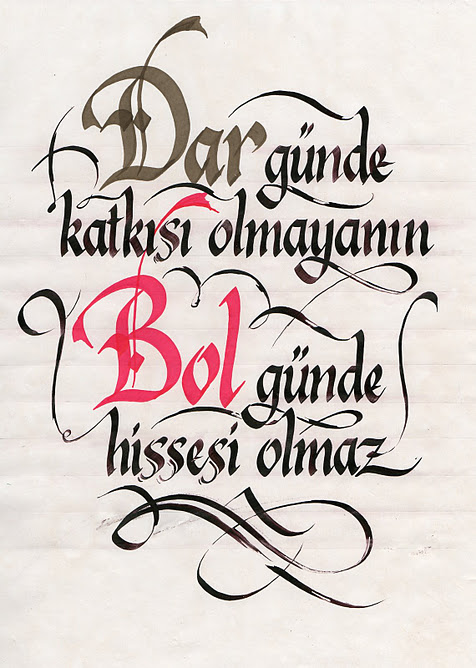 Dar günde
katkısı olmayanın
Bol günde
hissesi olmaz